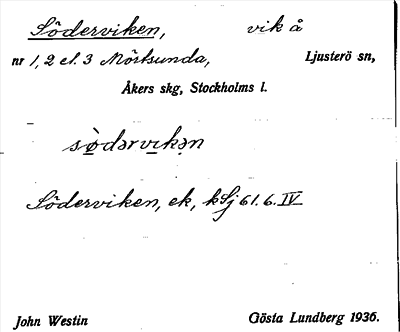 Söderviken, vik å
nr 1, 2 el. 3 Mörtsunda, Ljusterö sn,
Åkers skg, Stockholms l.
sø̀dərvikən
Söderviken, ek, kSj 61.6.IV
John Westin Gösta Lundberg 1936.